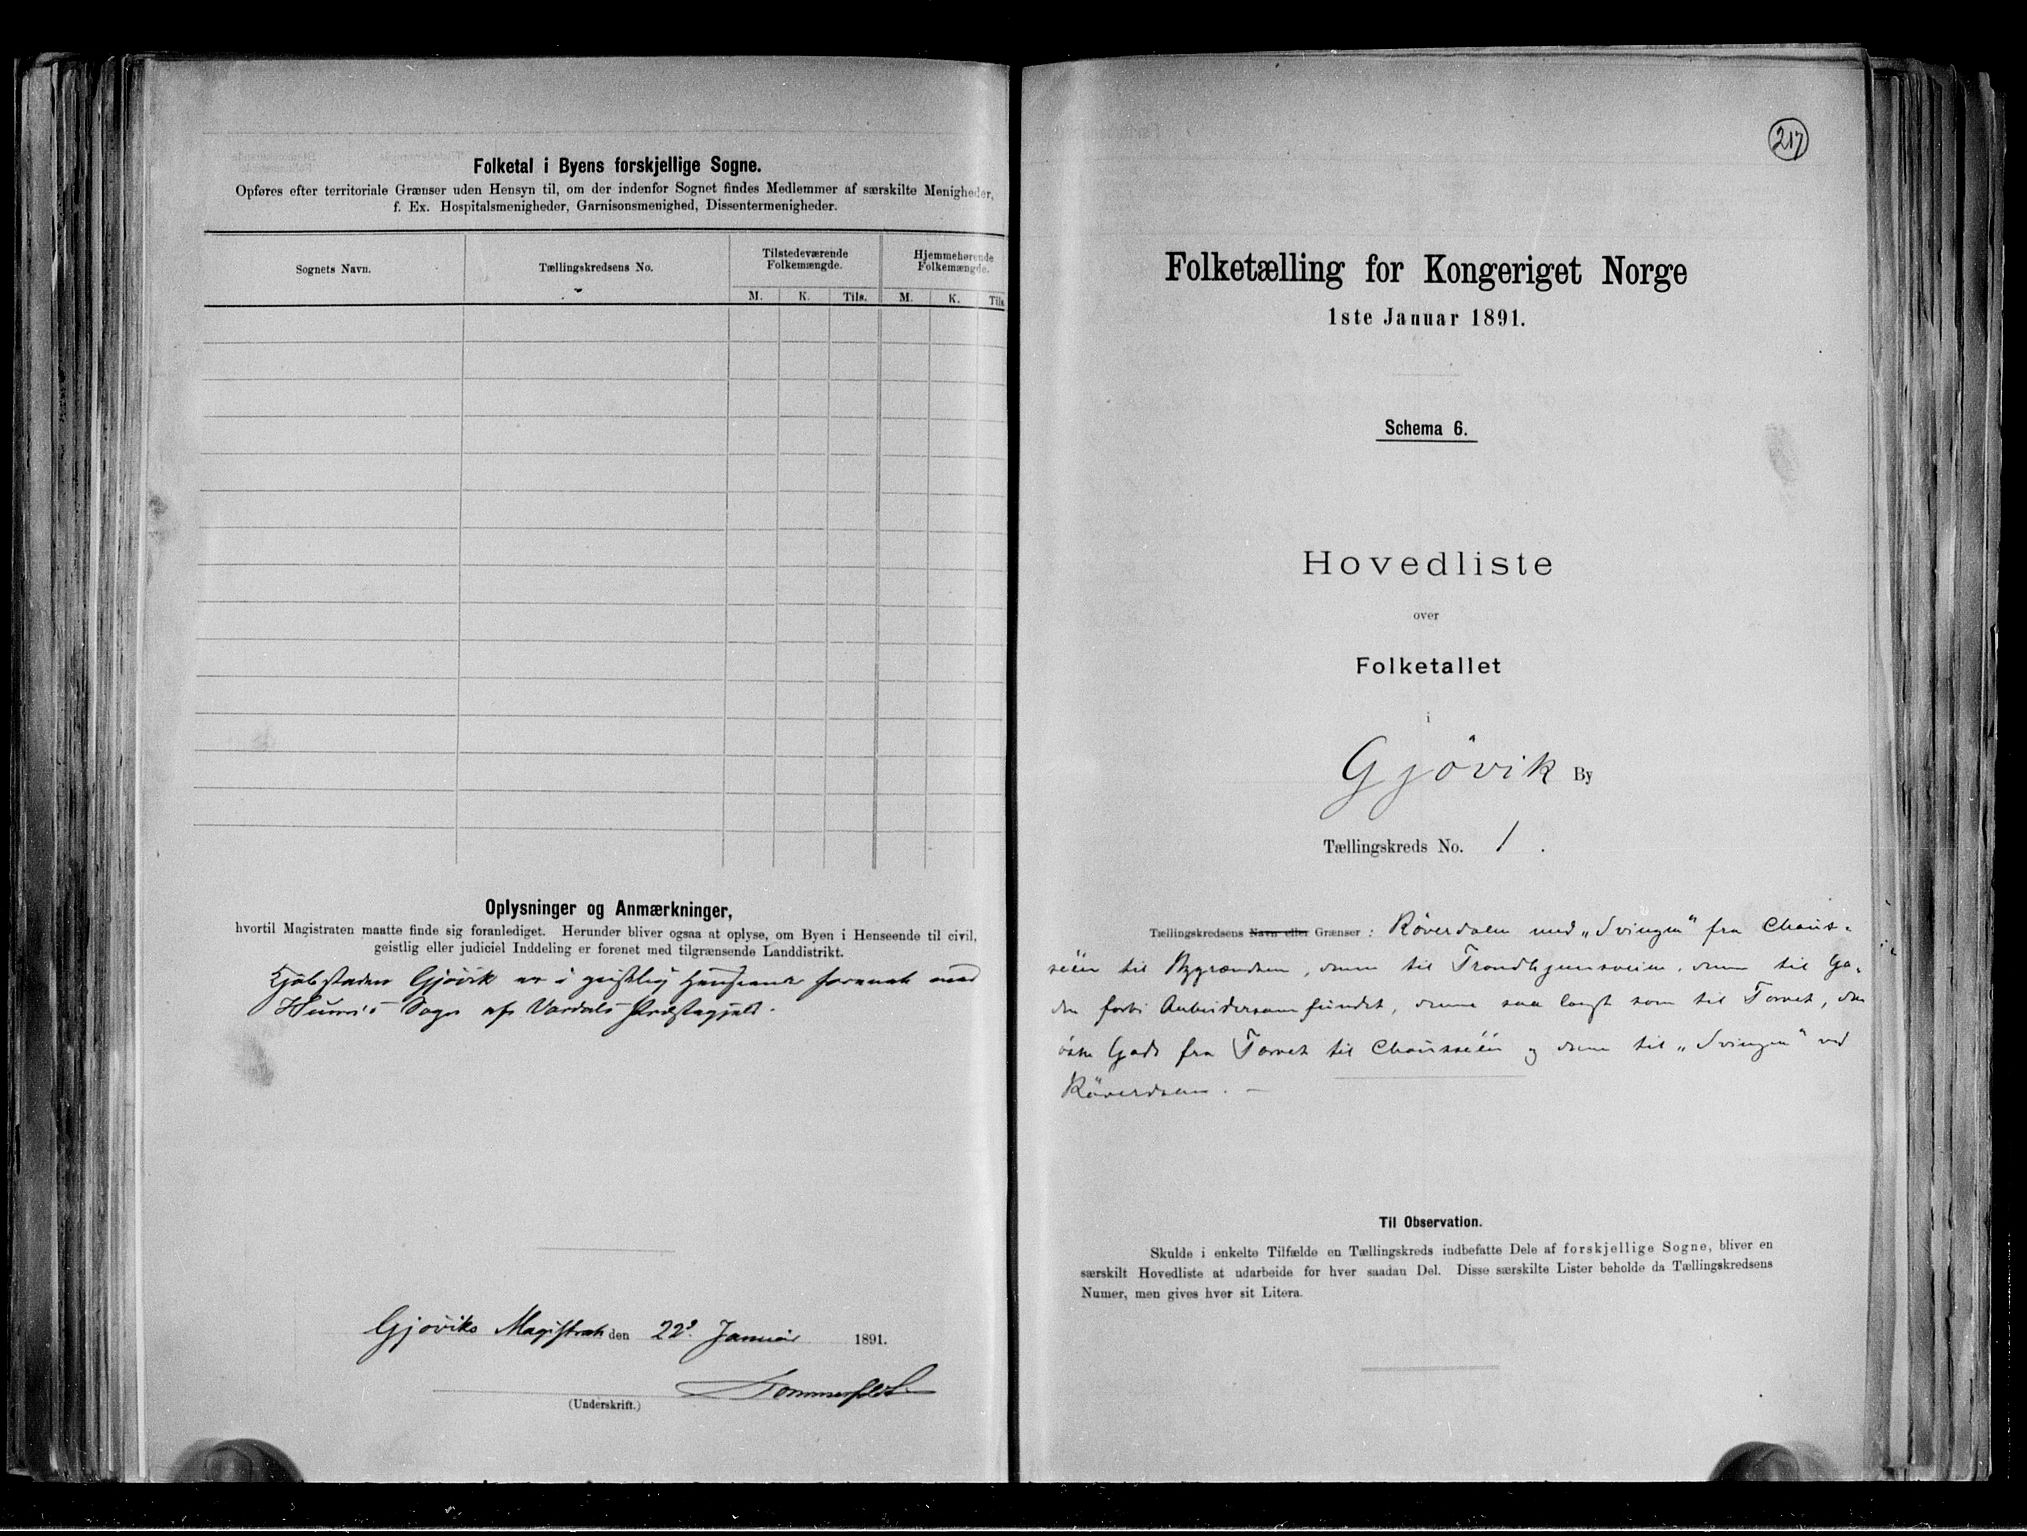 Folketal i Byens forskjellige Sogne.
Opføres efter territoriale Grænser uden Hensyn til, om der indenfor Sognet findes Medlemmer af særskilte Menigheder,
f. Ex. Hospitalsmenigheder, Garnisonsmenighed, Dissentermenigheder.
Sognets Navn.
Tællingskredsens No.
Tilstedeværende
Folkemængde.
Hjemmehørende
Folkemængde.
M. K. Tils. M. K. Tils
Oplysninger og Anmærkninger,
hvortil Magistraten maatte finde sig foranlediget. Herunder bliver ogsaa at oplyse, om Byen i Henseende til civil,
geistlig eller judiciel Inddeling er forenet med tilgrænsende Landdistrikt.
Kjøbstaden Gjøvik er i geistlig Henseende forenet med
Hunn's Sogn af Vardals Præstegjeld.
Gjøviks Magistrat den 22d Januar 1891.
Sommerfeldt
(Underskrift.)
217
Folketælling for Kongeriget Norge
1ste Januar 1891.
Schema 6.
Hovedliste
over
Folketallet
i
Gjövik By
Tællingskreds No. 1.
Tællingskredsens Navn eller Grænser: Röverdalen med „Svingen" fra Chaus-
séen til Bygrændsen, denne til Trondhjemsveien, denne til Ga-
den forbi Arbeidersamfundet, denne saa langt som til Torvet, den
östre Gade fra Torvet til Chausséen og denne til „Svingen" ved
Röverdalen. —
Til Observation.
Skulde i enkelte Tilfælde en Tællingskreds indbefatte Dele af forskjellige Sogne, bliver en
særskilt Hovedliste at udarbeide for hver saadan Del. Disse særskilte Lister beholde da Tællingskredsens
Numer, men gives hver sit Litera.